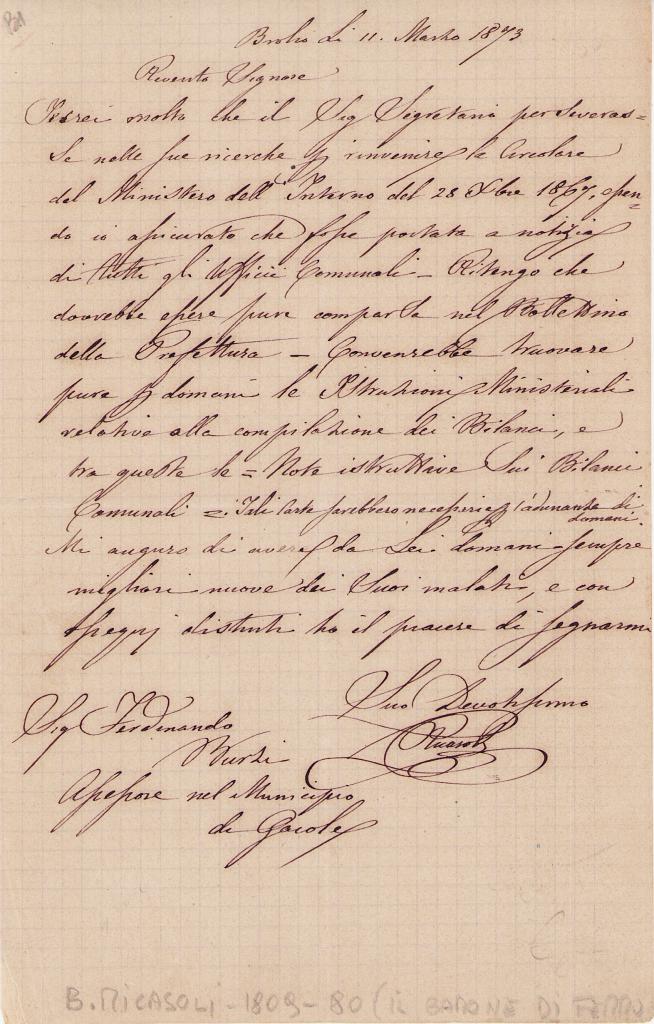 Brolio Li 11. Marzo 1873
Riverito Signore
che il Sig Segretario perseveras=
se nelle sue ricerche p rinvenire la Circolare
del Ministero dell'Interno del 28 Xbre 1867, essen=
do io assicurato che fosse portata a notizia
di tutti gli Ufficii Comunali – Ritengo che
dovrebbe essere pure comparsa nel Bollettino
della Prefettura – Converrebbe truovare
pure p domani le Istruzioni Ministeriali
relative alla compilazione dei Bilanci, e
tra queste le = Note istruttive sui Bilanci
Comunali =: Tali Carte sarebbero necessarie p l'adunanza di
domani.
Mi auguro di avere da Lei domani sempre
migliori nuove dei Suoi malati, e con
ossequj distinti ho il piacere di segnarmi
Suo Devotissimo
Ricasoli
Sig Ferdinando
Assessore nel Municipio
di Gaiole
B. RICASOLI - 1809 - 80 (IL BARONE DI